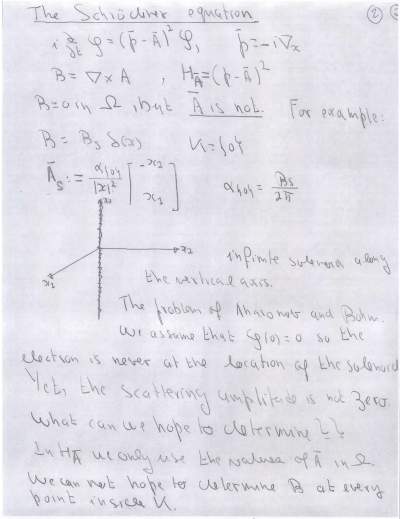 The Schrödinger equation ②
i ∂/∂t φ = (p̄ - Ā)² φ, p̄ = -i∇ₓ
B = ∇ × A , H_Ā = (p̄ - Ā)²
B = 0 in Ω, but Ā is not. For example:
B = B_S δ(x) K = {0}
Ā_S := α_{0}/|x|² [-x₂ x₁] α_{0} = B_S/2π
x₃
x₂
x₁
infinite solenoid along
the vertical axis.
The problem of Aharonov and Bohm.
We assume that φ(0) = 0 so the
electron is never at the location of the solenoid
Yet, the scattering amplitude is not zero.
What can we hope to determine ??
In H_Ā we only use the values of Ā in Ω.
We can not hope to determine B at every
point inside K.